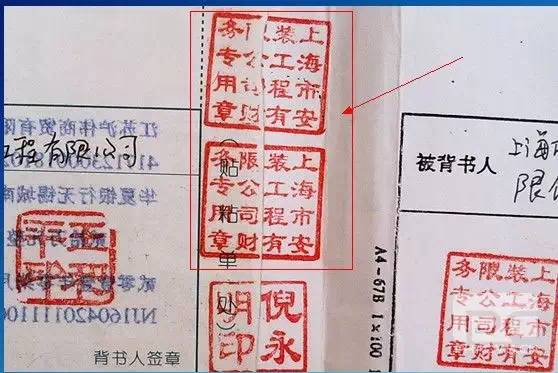 江苏沪伟商贸有限
工程有限公司
华夏银行无锡城南
背书人签章
上海市安
装工程有
限公司财
务专用章
上海市安
装工程有
限公司财
务专用章
倪永
明印
(贴粘单处)
A4-67B 1×100
被背书人
上海
限
上海市安
装工程有
限公司财
务专用章